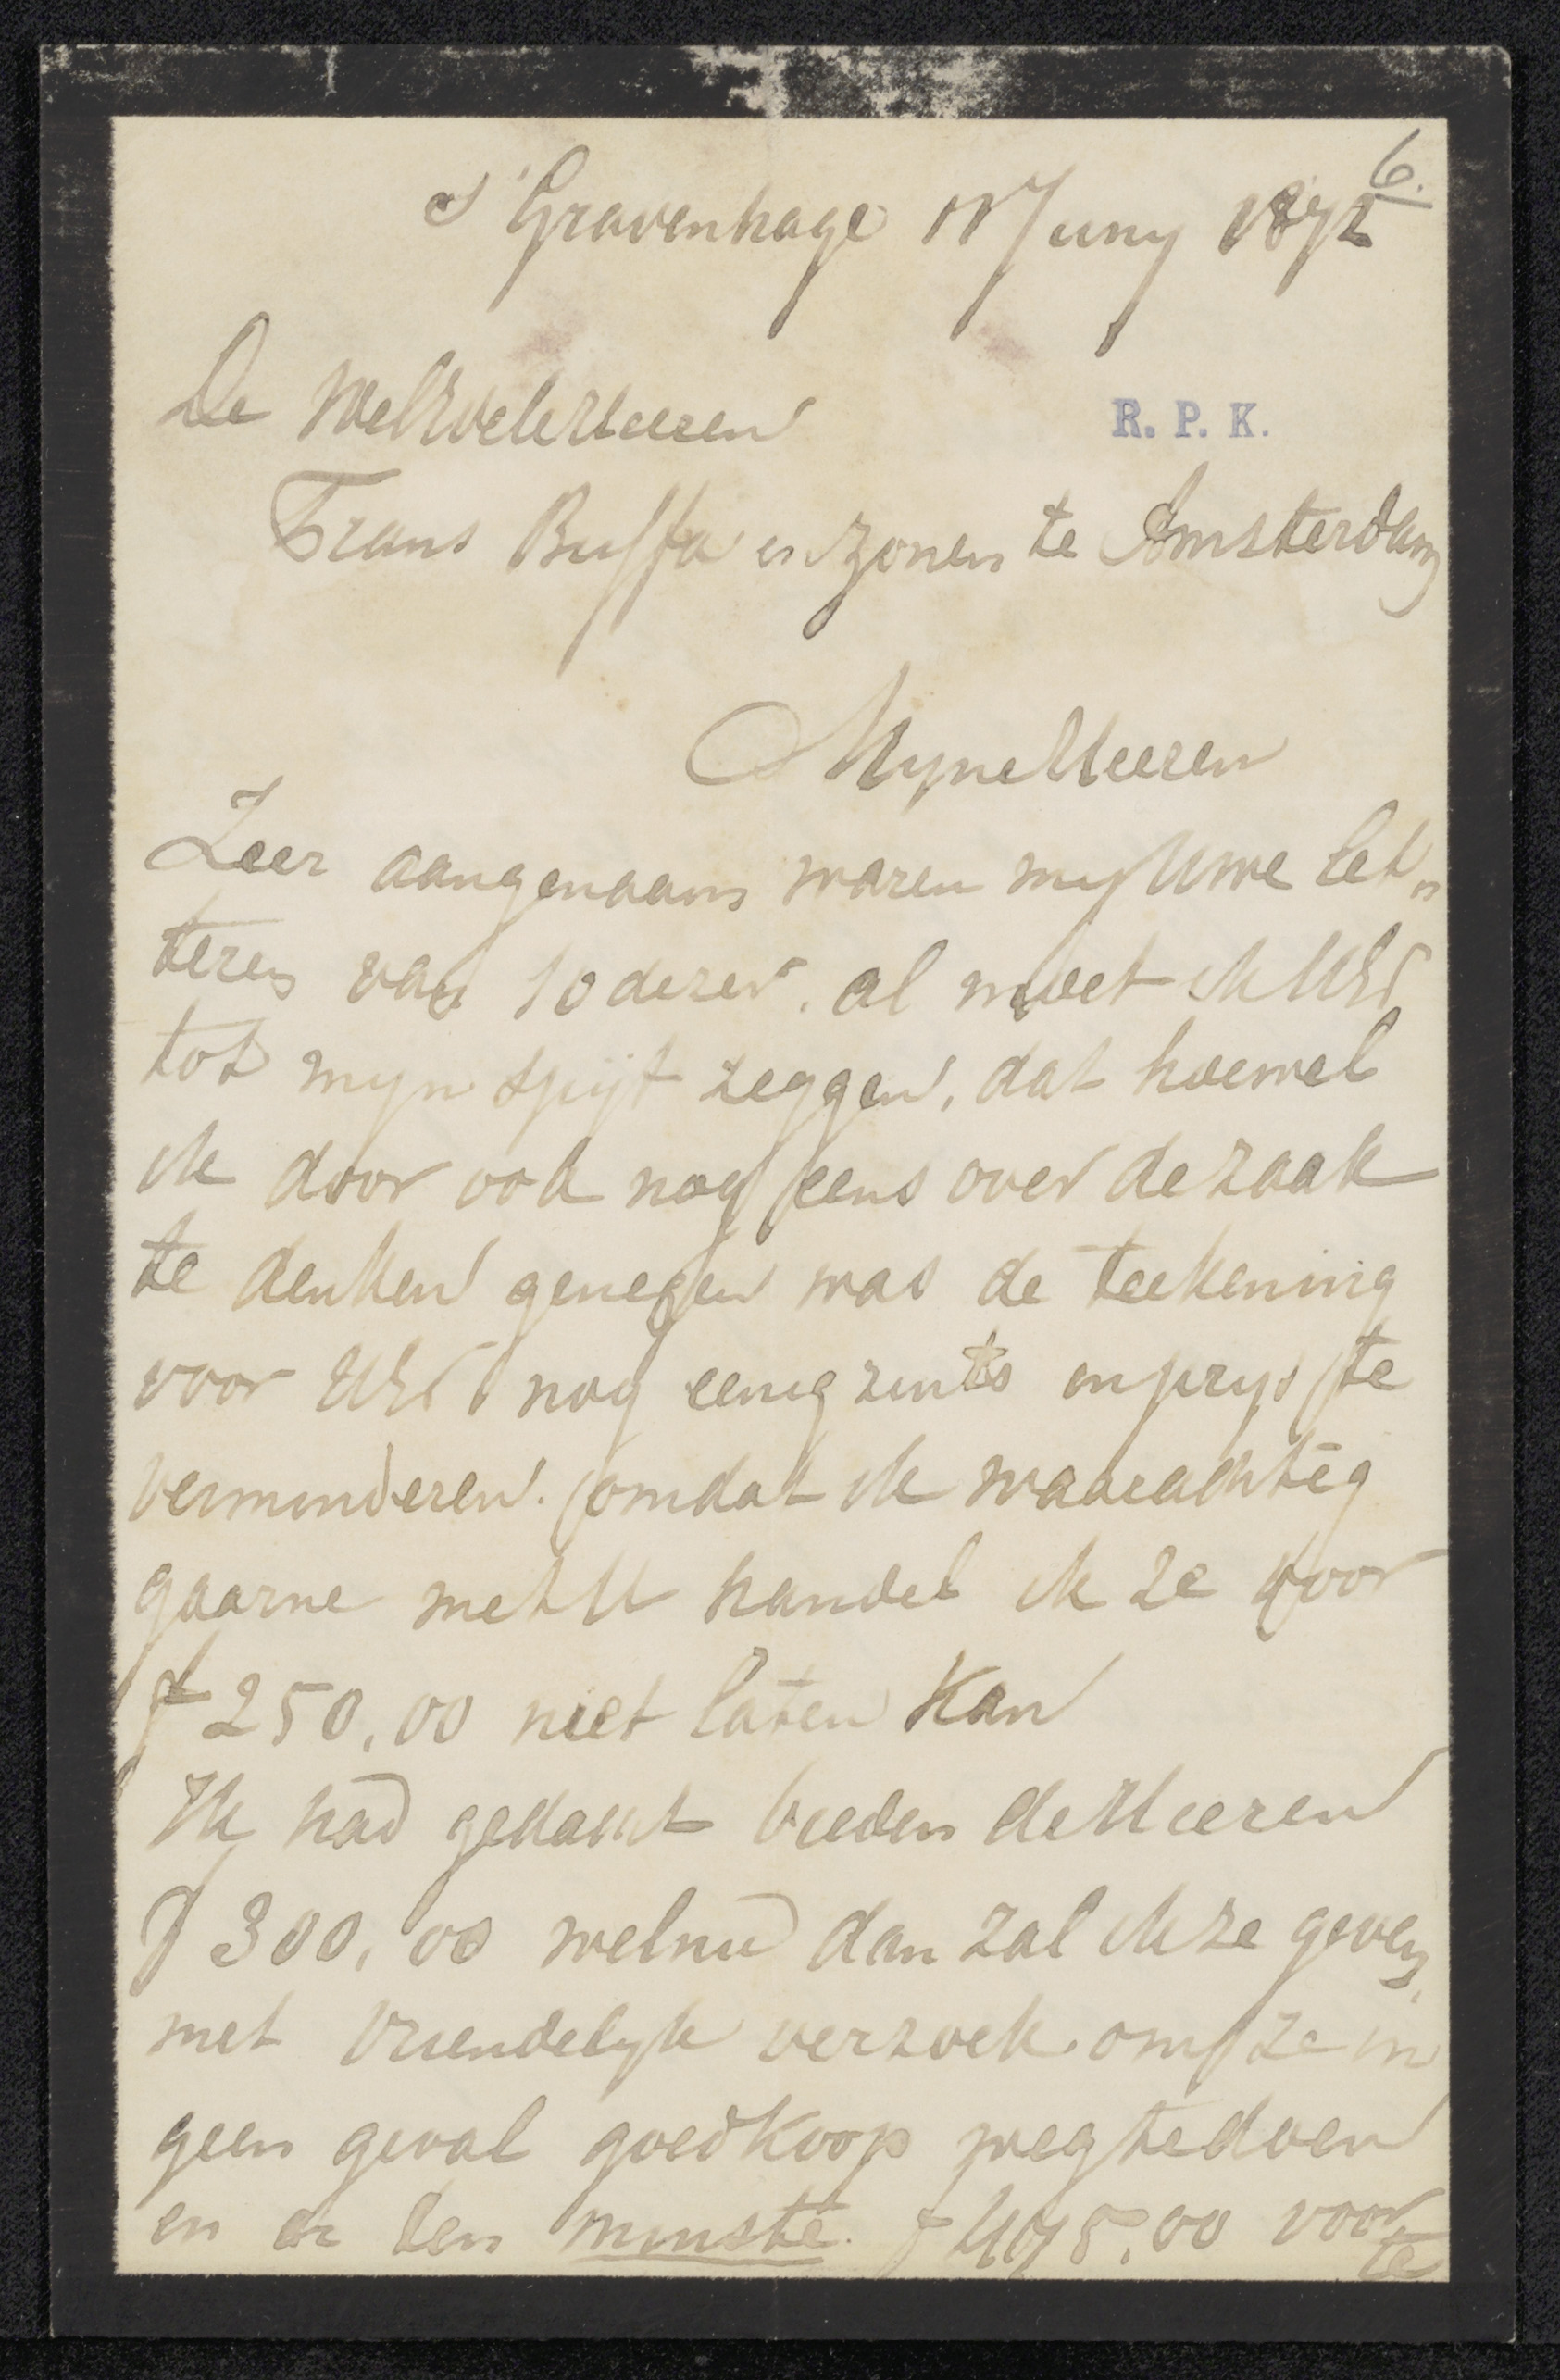 6.
s'Gravenhage 11 Juny 1872
De WelEdeleHeeren
R. P. K.
Frans Buffa en zonen te Amsterdam
MyneHeeren
Zeer aangenaam waren my Uwe let„
teren van 10 dezer. al moet ik UEd
tot myn spijt zeggen, dat hoewel
ik door ook nog eens over de zaak
te denken genegen was de teekening
voor UEd nog eenigzints in prys te
verminderen. omdat ik waarachtig
gaarne met U handel ik ze voor
f 250,00 niet laten kan
Ik had gedacht bieden de Heeren
f 300,00 welnu dan zal ik ze geven,
met vriendelyk verzoek om ze in
geen geval goedkoop wegtedoen
en er ten minste. f 495,00 voor
te